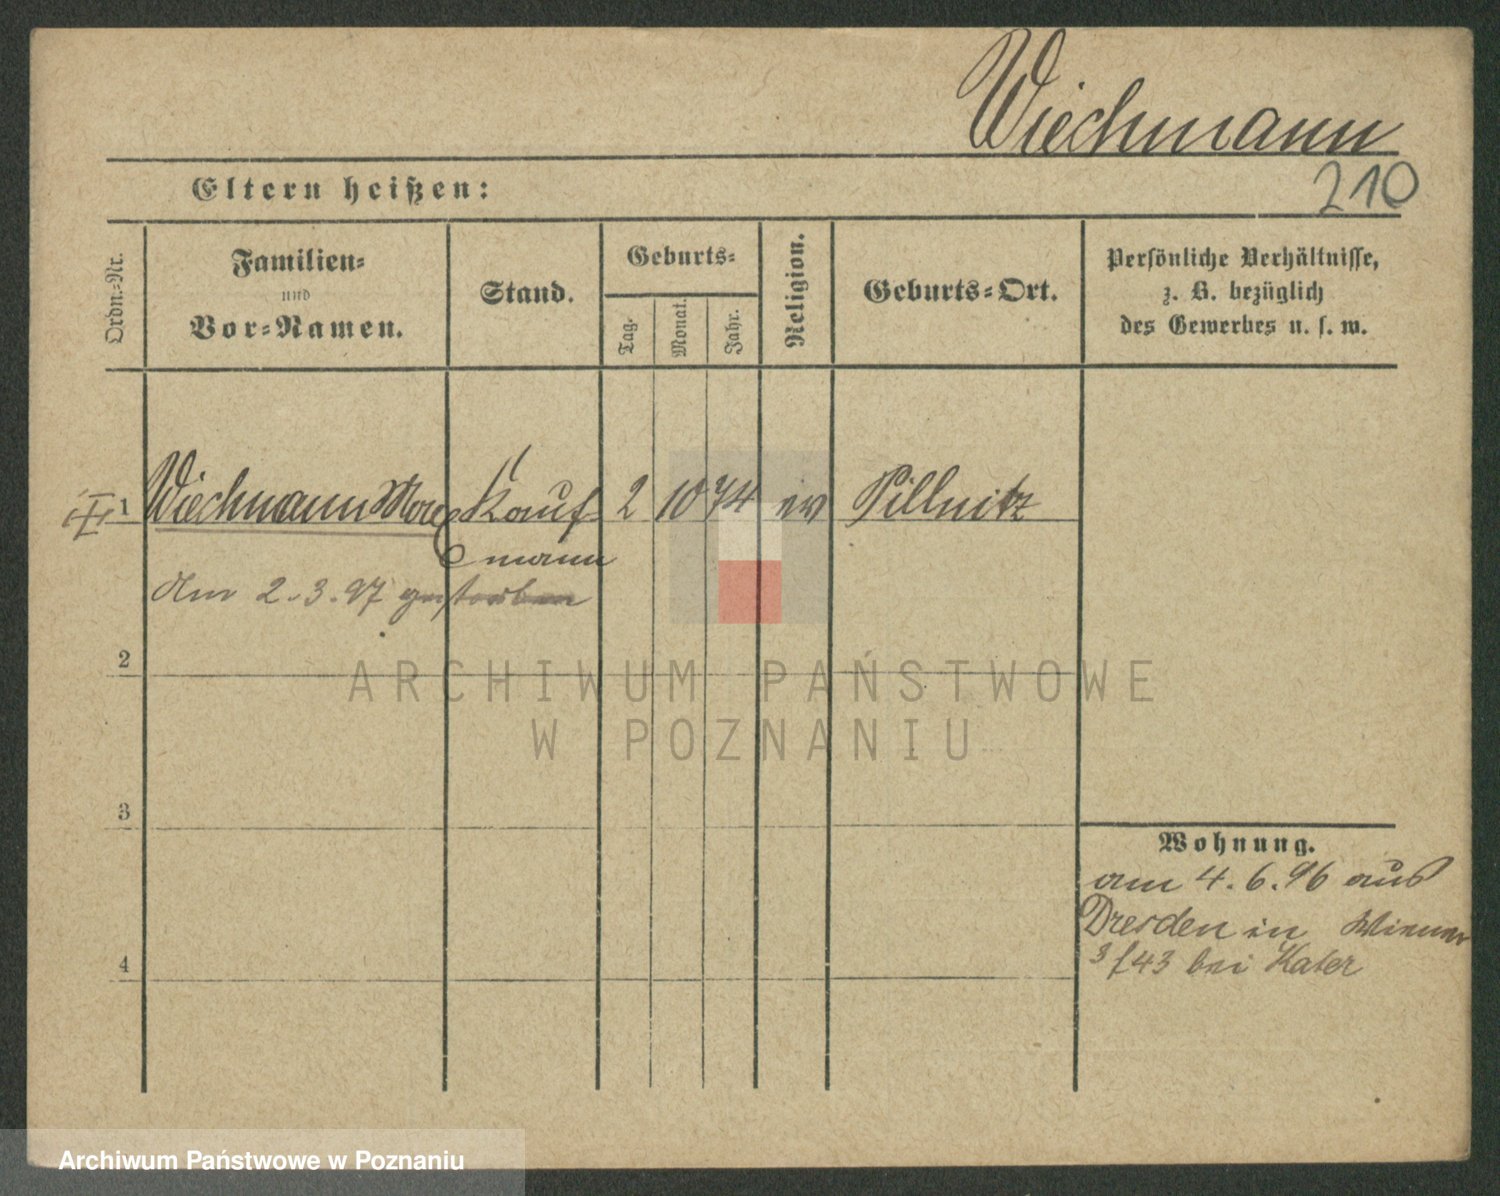 Wiechmann
210
Eltern heißen:
Ordn.-Nr.
Familien-
und
Vor-Namen.
Stand.
Geburts-
Tag.
Monat.
Jahr.
Religion.
Geburts-Ort.
Persönliche Verhältnisse,
z. B. bezüglich
des Gewerbes u. s. w.
1 Wiechmann Max Kauf 2 10 74 ev Pillnitz
mann
Am 2.3.97 gestorben
2
ARCHIWUM PAŃSTWOWE
W POZNANIU
3
Wohnung.
am 4.6.96 aus
Dresden in
43 bei Kater
4
Archiwum Państwowe w Poznaniu